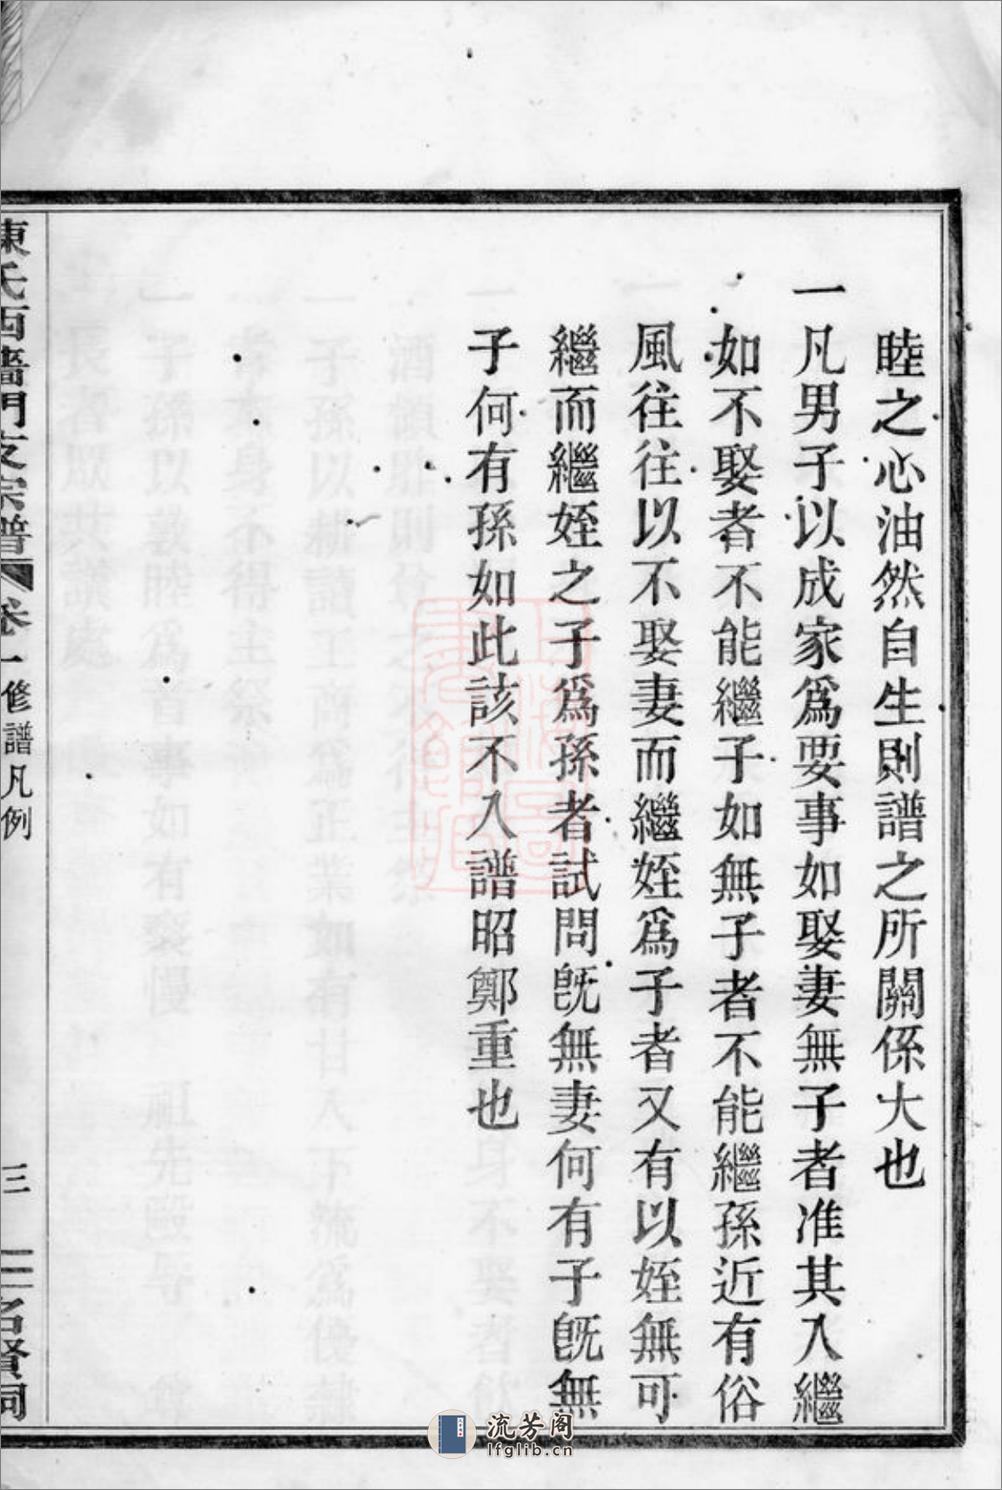 睦之心油然自生則譜之所關係大也
一凡男子以成家爲要事如娶妻無子者准其入繼
如不娶者不能繼子如無子者不能繼孫近有俗
風往往以不娶妻而繼姪爲子者又有以姪無可
繼而繼姪之子爲孫者試問旣無妻何有子旣無
子何有孫如此該不入譜昭鄭重也
陳氏西牆門支宗譜 卷一 修譜凡例 三 名賢祠
流芳阁
lfglib.cn